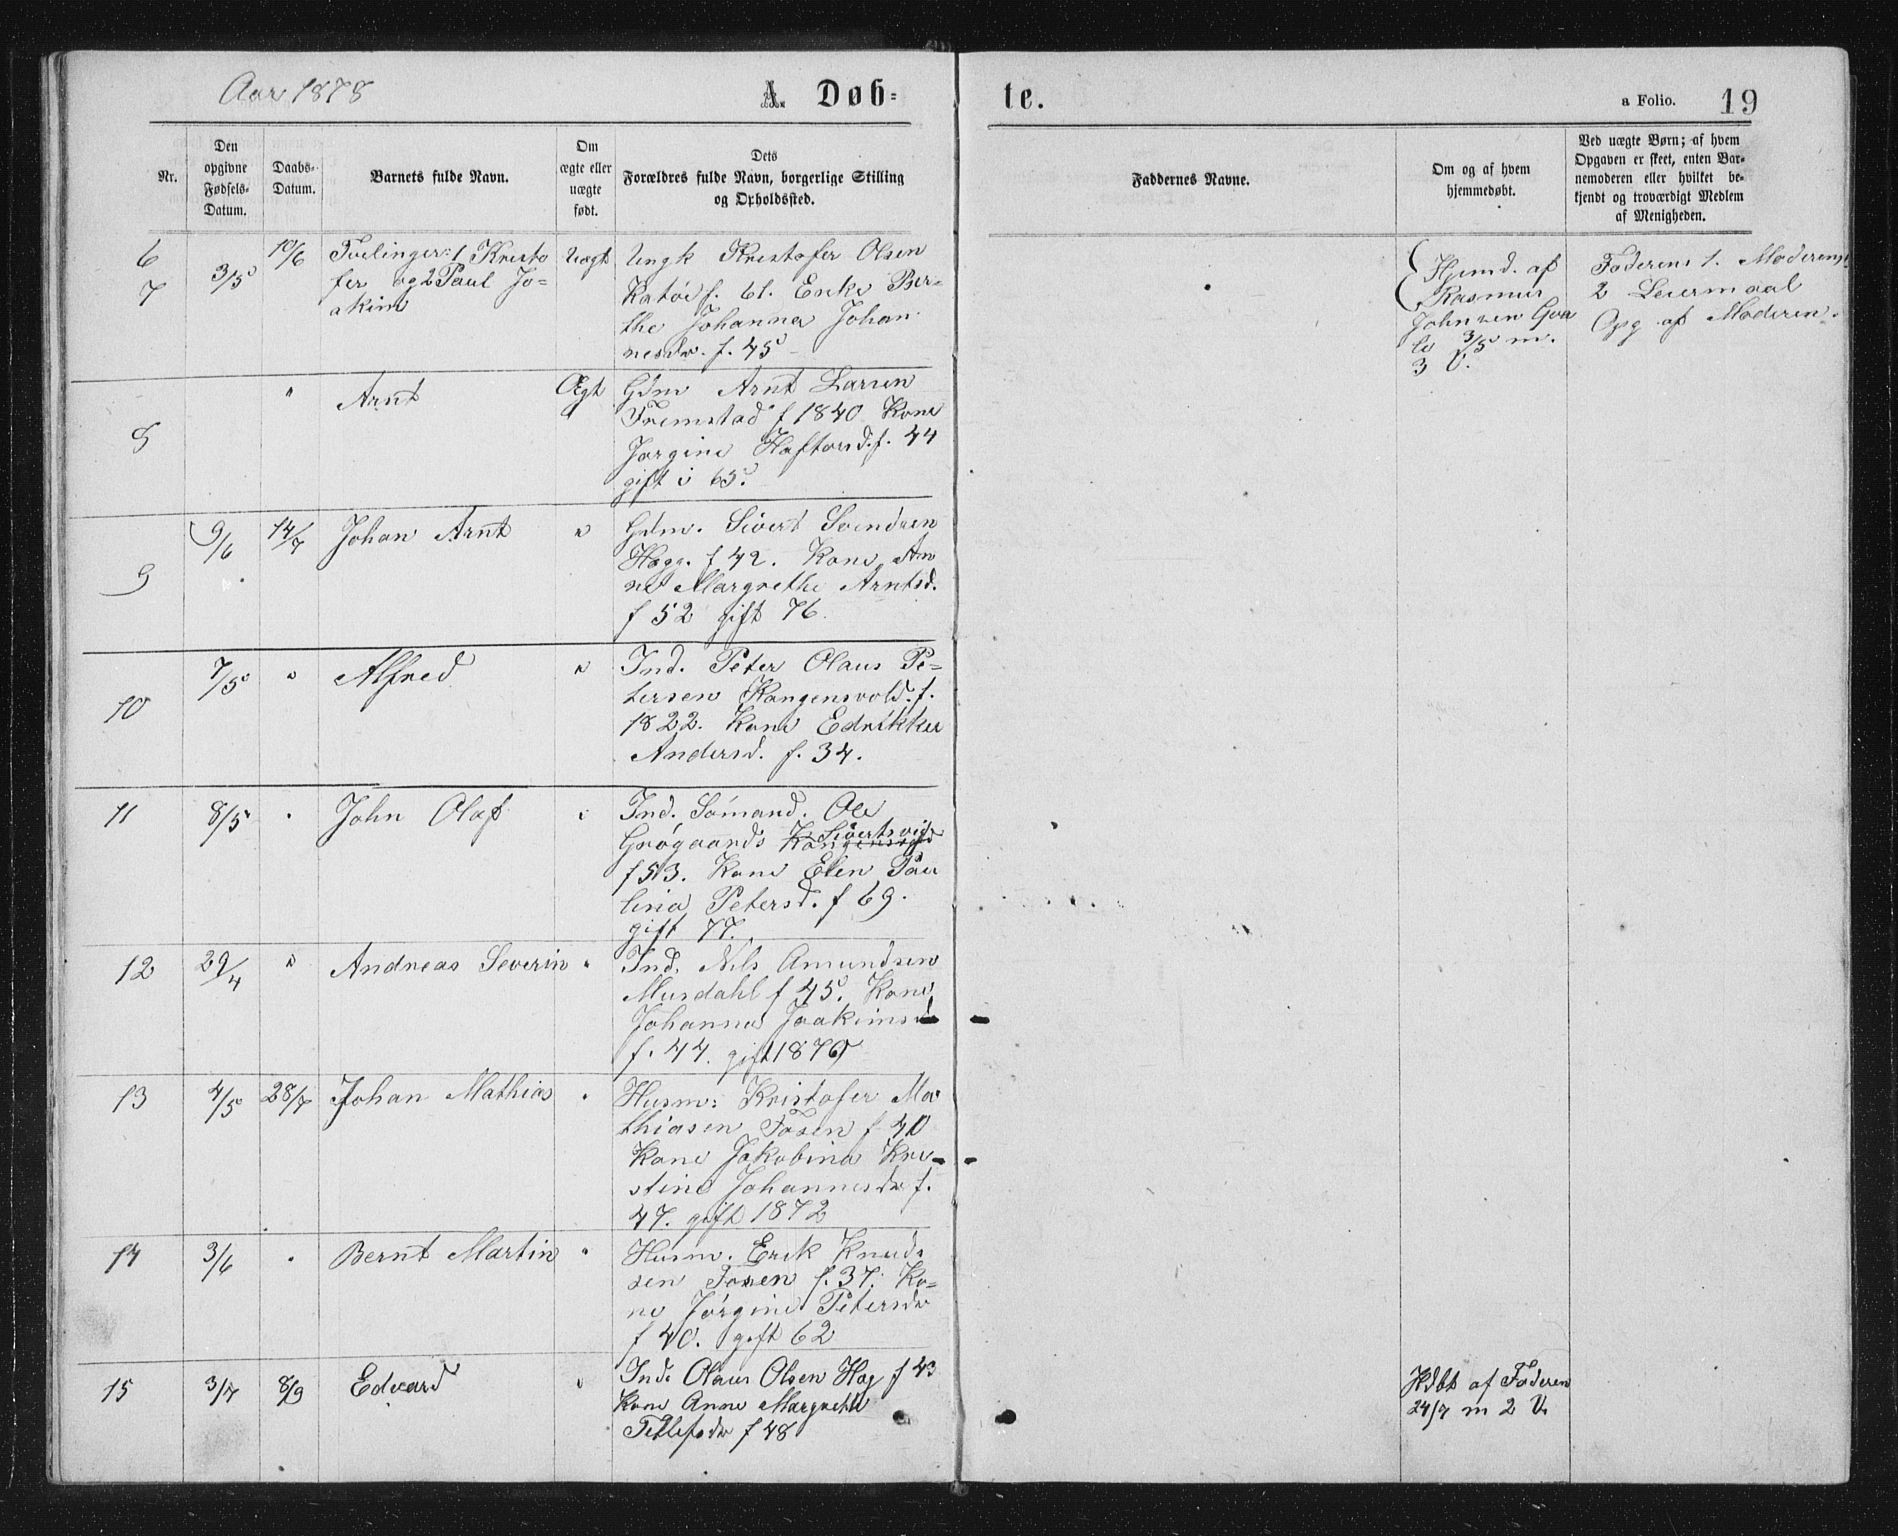 Aar 1878
A. Døb-
te.
a Folio. 19
Nr.
Den
opgivne
Fødsels-
Datum.
Daabs-
Datum.
Barnets fulde Navn.
Om
ægte eller
uægte
født.
Dets
Forældres fulde Navn, borgerlige Stilling
og Opholdssted.
Faddernes Navne.
Om og af hvem
hjemmedøbt.
Ved uægte Børn; af hvem
Opgaven er skeet, enten Bar-
nemoderen eller hvilket be-
kjendt og troværdigt Medlem
af Menigheden.
6
7
3/5
10/6
Tvelinger: 1 Kristo
fer og 2 Paul Jo=
akim
Uægt
Ungk Kristofer Olsen
f. 61. Enke Ber=
the Johanna Johan
nesdr. f. 45
Hjemd. af
Rasmus
Johnsen
3/5 m.
3 V.
Faderens 1. Moderens
2 Leiermaal
Opg af Moderen.
8
"
Arnt
Ægt
Gdm Arnt Larsen
Tremstad f 1840 Kone
Jørgine Haftorsd. f. 44
gift i 65.
9
9/6
14/7
Johan Arnt
"
Gdm. Sivert Svendsen
Hagg. f 42. Kone An
ne Margrethe Arntsd.
f 52 gift 76.
10
7/5
"
Alfred
"
Ind. Peter Olaus Pe=
tersen Kongensvold. f.
1822. Kone Edrikke
Andersd. f. 34.
11
8/5
"
John Olaf
"
Ind. Sömand. Ole
Grögaards Kongensvold
Sivertsvig
f 53. Kone Elen Pau
lina Petersd. f 69.
gift 77.
12
29/4
"
Andreas Severin
"
Ind. Nils Amundsen
Musdahl f 45. Kone
Johanna Joakimsd
f. 44. gift 1870
13
4/5
28/7
Johan Mathias
"
Husm: Kristofer Ma
thiasen Fosen f 40
Kone Jakobina Kri-
stine Johannesdr f.
47. gift 1872
14
3/6
"
Bernt Martin
"
Husm. Erik Knud
sen Fosen f. 37. Ko=
ne Jørgine Petersdr
f 40. gift 62
15
3/7
8/9
Edvard
"
Ind. Olaus Olsen Hag f 43
Kone Anne Margrethe
Tellefsdr f 48
Hdbt af Faderen
24/7 m 2 V.